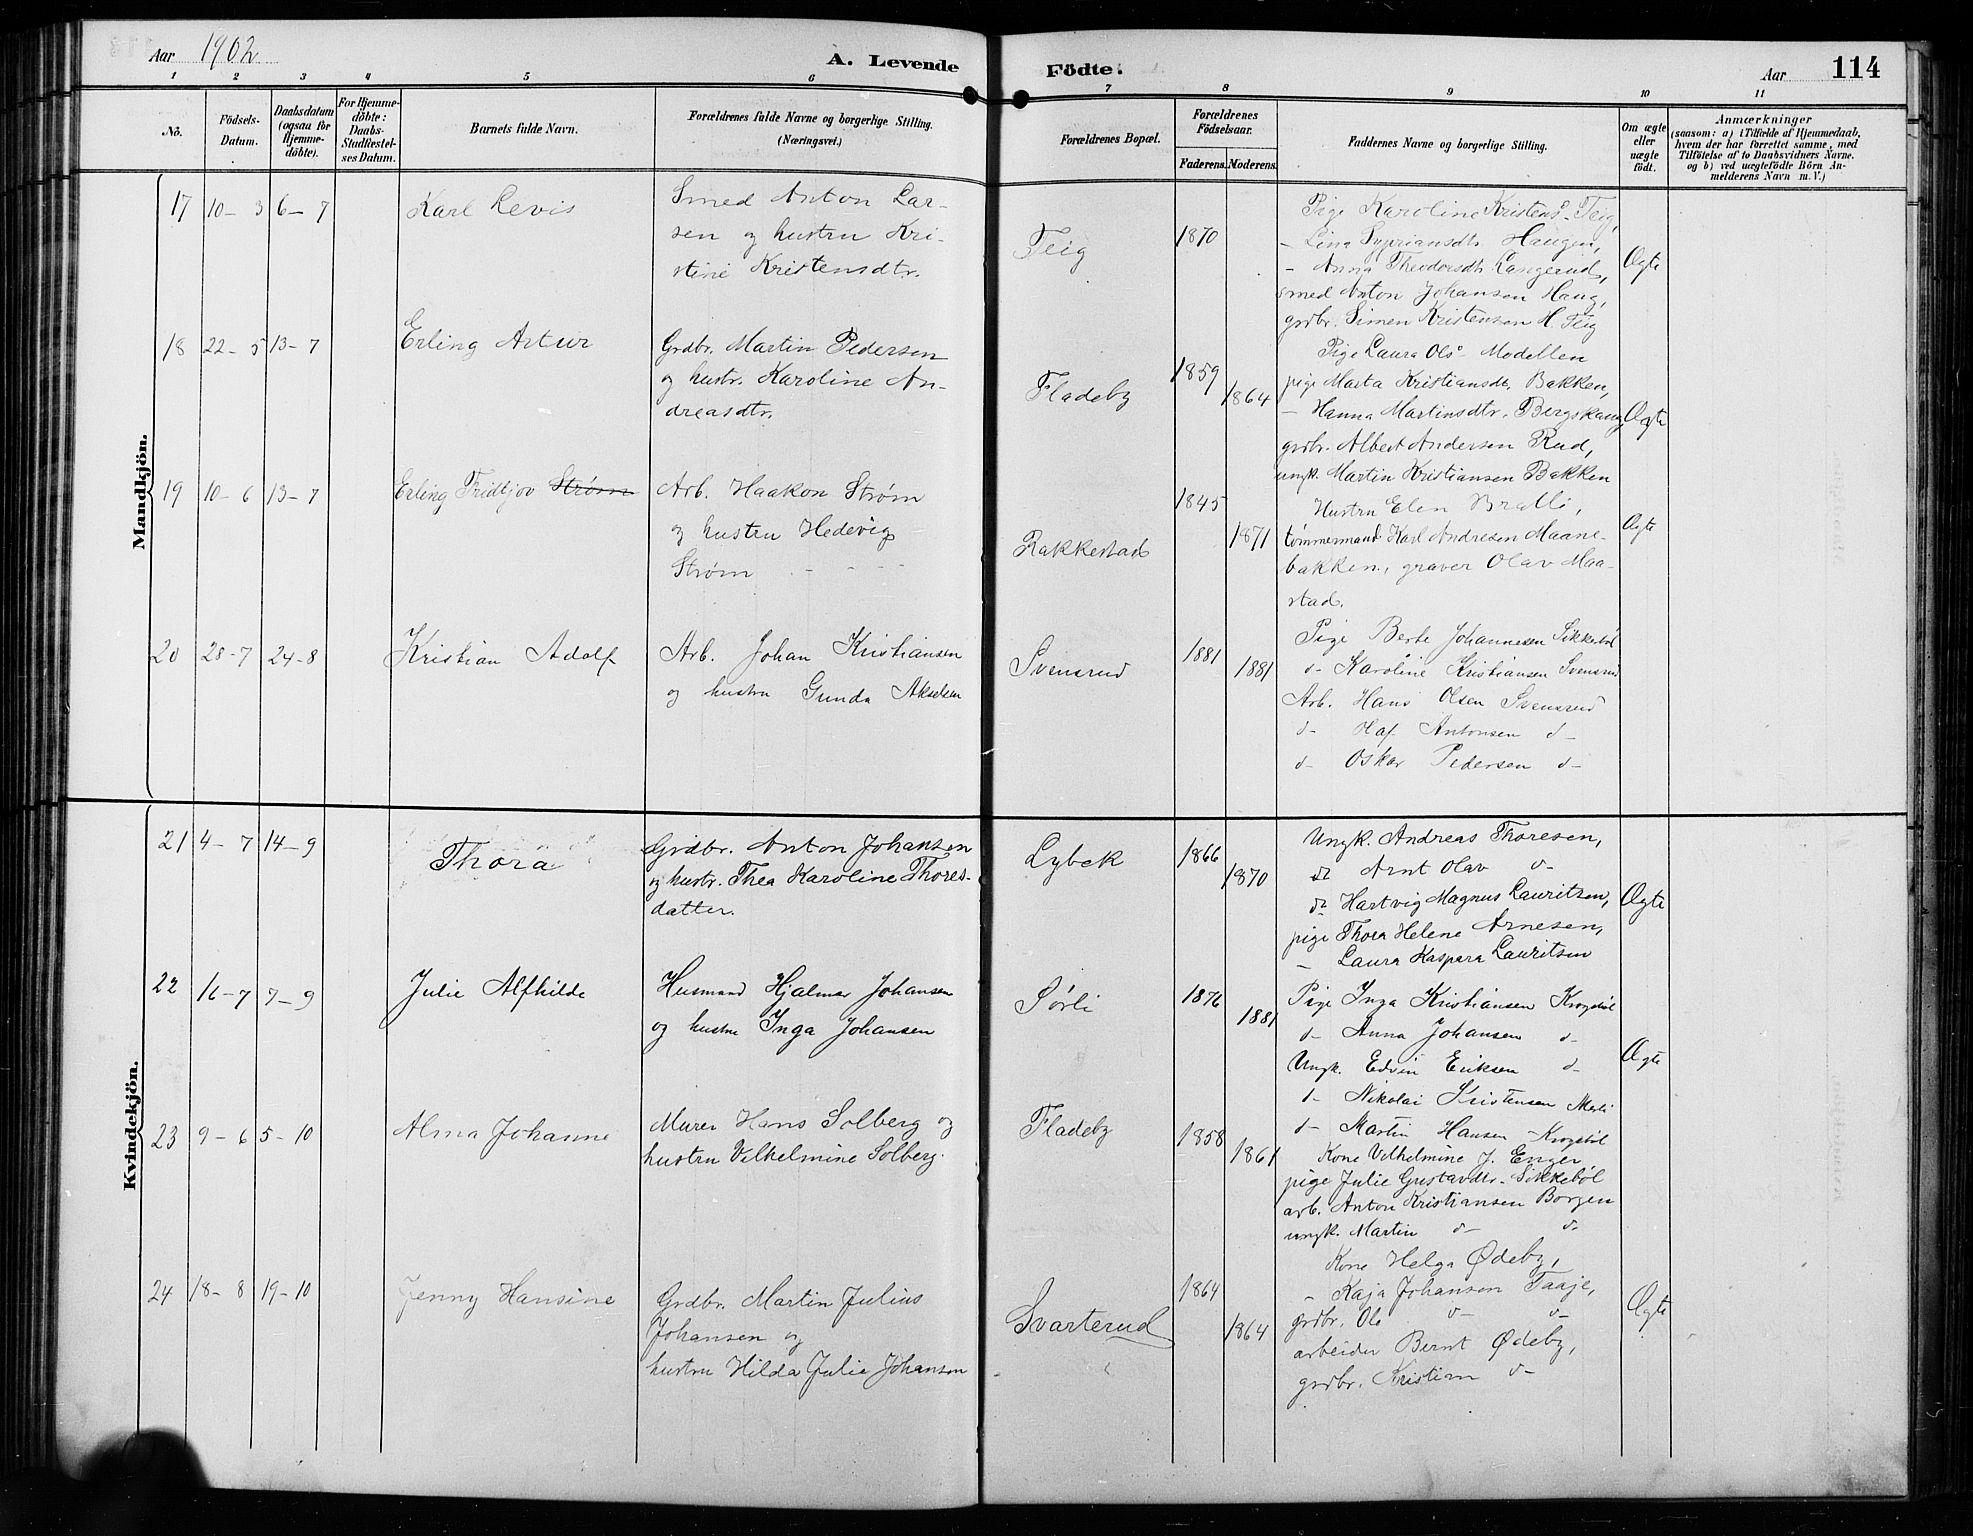 Aar 1902
A. Levende Födte.
Aar 114
1 2 3 4 5 6 7 8 9 10 11
No.
Födsels-Datum.
Daabsdatum (ogsaa for Hjemme-döbte).
For Hjemme-döbte: Daabs-Stadfæstel-ses Datum.
Barnets fulde Navn.
Forældrenes fulde Navne og borgerlige Stilling. (Næringsvei.)
Forældrenes Bopæl.
Forældrenes Födselsaar.
Faderens. Moderens.
Faddernes Navne og borgerlige Stilling.
Om ægte eller uægte födt.
Anmærkninger
(saasom: a) i Tilfælde af Hjemmedaab,
hvem der har forrettet samme, med
Tilföielse af to Daabsvidners Navne.
og b) ved uægtefödte Börn An-
melderens Navn m. V.)
Mandkjön.
17 10-3 6-7 Karl Levis
Smed Anton Lar-
sen og hustru Kri-
stine Kristensdtr.
Teig 1870
Pige Karoline Kristens- Teig,
- Lina Sypriansdtr. Haugen,
- Anna Theodorsdtr. Langerud,
smed Anton Johansen Haug,
grdbr. Simen Kristensen M. Teig
Ægte
18 22-5 13-7 Erling Artur
Grdbr. Martin Pedersen
og hustr. Karoline An-
dreasdtr.
Fladeby 1859 1864
Pige Laura Ols- Modellen
pige Marta Kristiansdt. Bakken,
- Hanna Martinsdtr. Bergskaug
grdbr. Albert Andersen Rud,
ungk. Martin Kristiansen Bakken
Ægte
19 10-6 13-7 Erling Fridtjov Strøm
Arb. Haakon Strøm
og hustru Hedevig
Strøm - - - -
Rakkestad 1845 1871
Hustru Elen Bralli,
tømmermand Karl Andresen Maane-
bakken, graver Olav Maa-
stad.
Ægte
20 28-7 24-8 Kristian Adolf
Arb. Johan Kristiansen
og hustru Gunda Akselsen
Svensrud 1881 1881
Pige Berte Johannesen Sikkebøl
d- Karoline Kristiansen Svensrud
Arb. Hans Olsen Svensrud
d- Haf. Antonsen d-
d- Oskar Pedersen d-
Kvindekjön.
21 4-7 14-9 Thora
Grdbr. Anton Johansen
og hustr. Thea Karoline Thores-
datter.
Lybek 1866 1870
Ungk. Andreas Thoresen,
do Arnt Olav d-
do Hartvig Magnus Lauritsen,
pige Thora Helene Arnesen,
- Laura Kaspara Lauritsen
Ægte
22 16-7 7-9 Julie Alfhilde
Husmand Hjalmar Johansen
og hustru Inga Johansen
Sørli 1876 1881
Pige Inga Kristiansen Krogsbøl
d- Anna Johansen d-
Ungk. Edvin Eriksen d-
d- Nikolai Kristensen
d- Martin Hansen Krogsbøl
Ægte
23 9-6 5-10 Alma Johanne
Murer Hans Solberg og
hustru Vilhelmine Solberg.
Fladeby 1858 1861
Kone Vilhelmine J. Enger
pige Julie Gustavdtr. Sikkebøl
arb. Anton Kristiansen Borgen
ungk. Martin d- d-
24 18-8 19-10 Jenny Hansine
Grdbr. Martin Julius
Johansen og
hustru Hilda Julie Johansen
Svarterud 1864 1864
Kone Helga Ødeby,
- Kaja Johansen Taaje,
grdbr. Ole d- d-
arbeider Bernt Ødeby,
grdbr. Kristian d-
Ægte